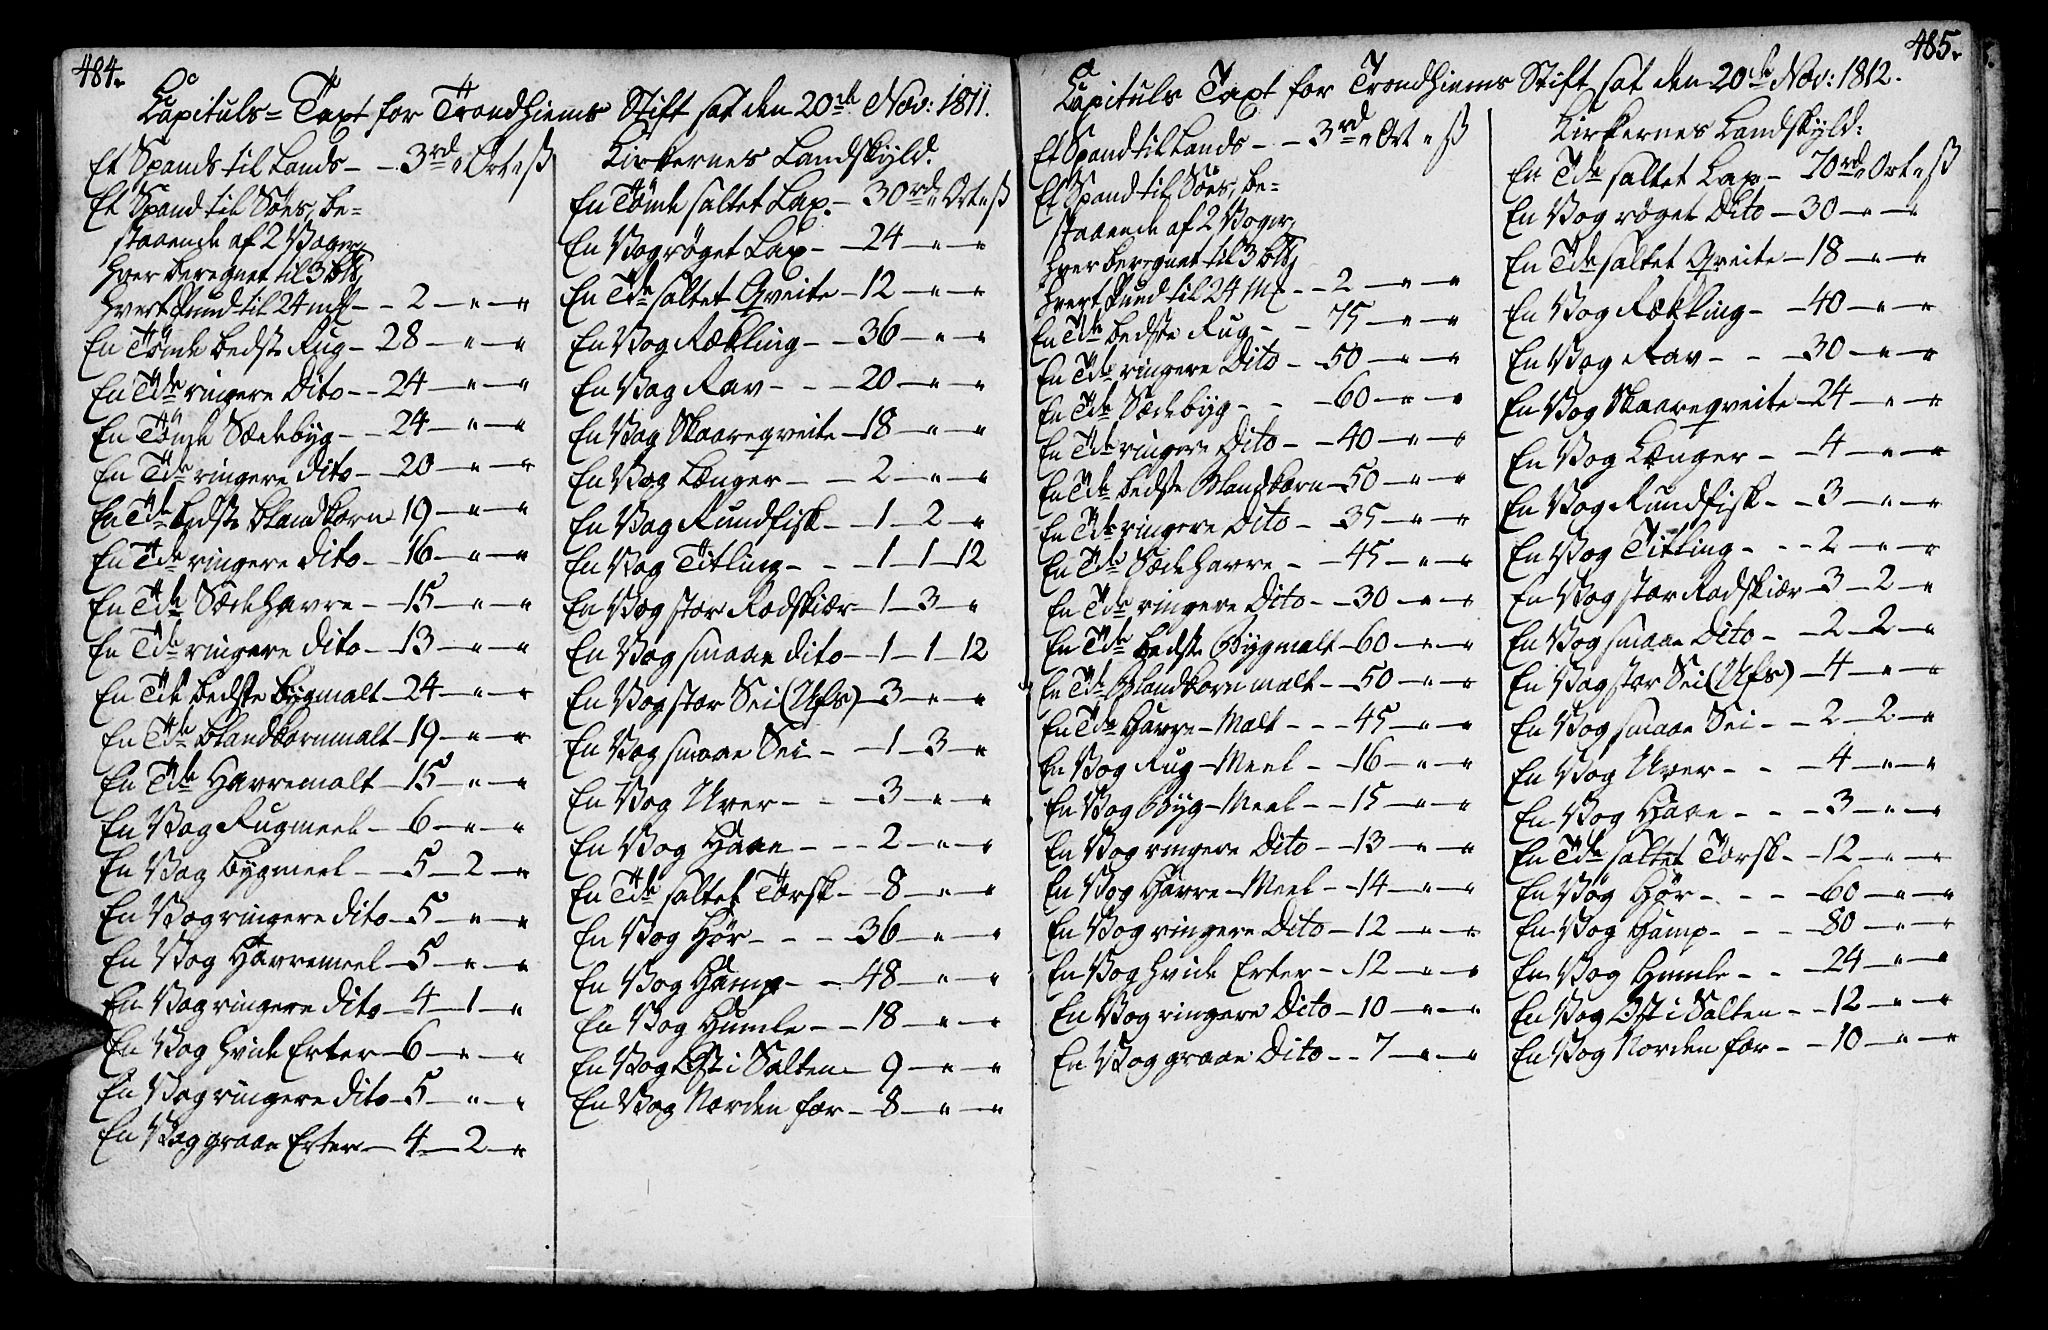 484.
Capituls-Taxt for Trondhiems Stift sat den 20de Nov: 1811.
Et Spands til Lands - - 3rd " Ort " ß
Et Spand til Söes, be-
staaende af 2 Voger,
hver beregnet til 3 b℔,
hvert Pund til 24 m℔ - - 2 - " - "
En Tönde bedste Rug - 28 - " - "
En Tde ringere Dito - - 24 - " - "
En Tönde Sædebyg - - 24 - " - "
En Tde ringere dito - - 20 - " - "
En Tde bedste blandkorn 19 - " - "
En Tde ringere dito - - 16 - " - "
En Tde Sædehavre - - 15 - " - "
En Tde ringere dito - - 13 - " - "
En Td bedste bygmalt - 24 - " - "
En Tde blandkornmalt - 19 - " - "
En Tde Havremalt - 15 - " - "
En Vog Rugmeel - - 6 - " - "
En Vog bygmeel - - 5 - 2 - "
En Vog ringere dito - 5 - " - "
En Vog Havremeel - 5 - " - "
En Vog ringere dito - 4 - 1 - "
En Vog hvide Erter - 6 - " - "
En Vog ringere dito - 5 - " - "
En Vog graae Erter - 4 - 2 - "
Kirkernes Landskyld.
En Tönde saltet Lax. - 30rd " Ort " ß
En Vog röget Lax - - 24 - " - "
En Tde saltet Qveite - 12 - " - "
En Vog Rækling - - 36 - " - "
En Vog Rav - - - 20 - " - "
En Vog Skaareqveite - 18 - " - "
En Vog Længer - - 2 - " - "
En Vog Rundfisk - - 1 - 2 - "
En Vog Titling - - - 1 - 1 - 12
En Vog stor Rodskiær - 1 - 3 - "
En Vog smaae dito - 1 - 1 - 12
En Vog stor Sei (Ufs) - 3 - " - "
En Vog smaae Sei - - 1 - 3 - "
En Vog Uver - - - 3 - " - "
En Vog Haae - - - 2 - " - "
En Tde saltet Torsk - - 8 - " - "
En Vog Hör - - - 36 - " - "
En Vog Hamp - - 48 - " - "
En Vog Humle - - 18 - " - "
En Vog Ost i Salten - 9 - " - "
En Vog Norden for - 8 - " - "
485.
Capituls Taxt for Trondhiems Stift sat den 20de Nov: 1812.
Et Spand til Lands - - 3rd " Ort " ß
Et Spand til Söes, be-
staaende af 2 Voger,
hver beregnet til 3 b℔,
hvert Pund til 24 M℔ - - 2 - " - "
En Tde bedste Rug - - 75 - " - "
En Tde ringere Dito - - 50 - " - "
En Tde Sædebyg - - - 60 - " - "
En Tde ringere Dito - - 40 - " - "
En Tde bedste Blandkorn - 50 - " - "
En Tde ringere Dito - 35 - " - "
En Tde Sædehavre - - 45 - " - "
En Tde ringere Dito - - 30 - " - "
En Tde bedste Bygmalt - 60 - " - "
En Td Blandkornmalt - 50 - " - "
En Tde Havre-Malt - - - 45 - " - "
En Vog Rug-Meel - - 16 - " - "
En Vog Byg-Meel - - 15 - " - "
En Vog ringere Dito - - 13 - " - "
En Vog Havre-Meel - - 14 - " - "
En Vog ringere Dito - 12 - " - "
En Vog hvide Erter - - 12 - " - "
En Vog ringere Dito - 10 - " - "
En Vog graae Dito - - 7 - " - "
Kirkernes Landskyld:
En Tde saltet Lax - 70rd " Ort " ß
En Vog röget Dito - 30 - " - "
En Tde saltet Qveite - 18 - " - "
En Vog Rækling - - 40 - " - "
En Vog Rav - - - 30 - " - "
En Vog Skaareqveite - 24 - " - "
En Vog Længer - - 4 - " - "
En Vog Rundfisk - - 3 - " - "
En Vog Titling - - - 2 - " - "
En Vog stor Rodskiær - 3 - 2 - "
En Vog smaae Dito - - 2 - 2 - "
En Vog stor Sei (Ufs) - 4 - " - "
En Vog smaae Sei - - 2 - 2 - "
En Vog Uver - - - 4 - " - "
En Vog Haae - - - 3 - " - "
En Tde saltet Torsk - - 12 - " - "
En Vog Hör - - - 60 - " - "
En Vog Hamp - - - 80 - " - "
En Vog Humle - - - 24 - " - "
En Vog Ost i Salten - - 12 - " - "
En Vog Norden for - - 10 - " - "